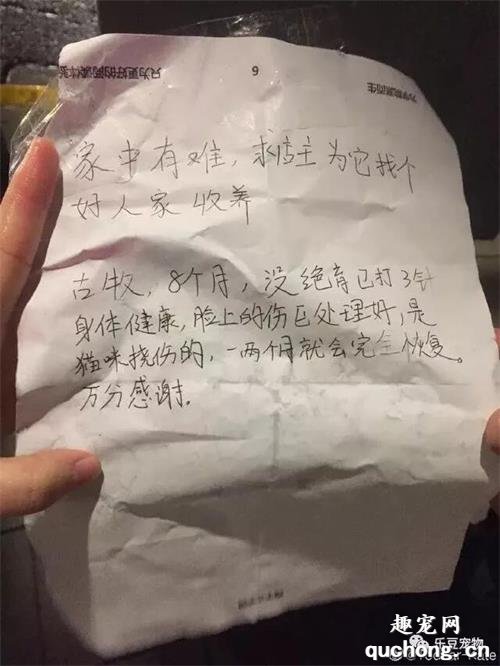 6
家中有难，求店主为它找个
好人家收养
古牧，8个月，没绝育已打3针
身体健康，脸上的伤已处理好，是
猫咪挠伤的，一两个月就会完全恢复。
万分感谢.
趣宠网
乐豆宠物
quchong.cn